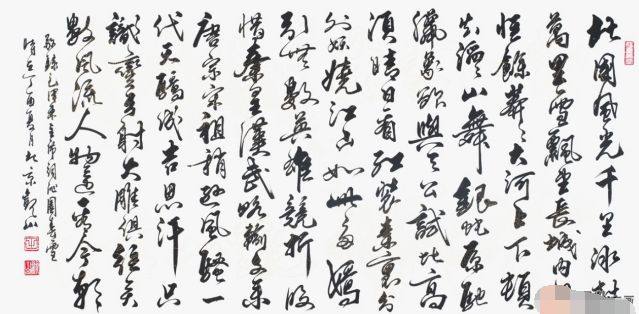 北国風光千里冰封
萬里雪飄望長城内
惟餘莽々大河上下頓
失滔々山舞銀蛇原馳
臘象欲與天公試比高
須晴日看紅裝素裹分
外妖嬈江山如此多嬌
引無數英雄競折腰
惜秦皇漢武略輸文采
唐宗宋祖稍遜風騷一
代天驕成吉思汗只
識彎弓射大雕俱往矣
數風流人物還看今朝
敬錄毛澤東主席詞沁園春雪
時在丁酉夏月北京觀山